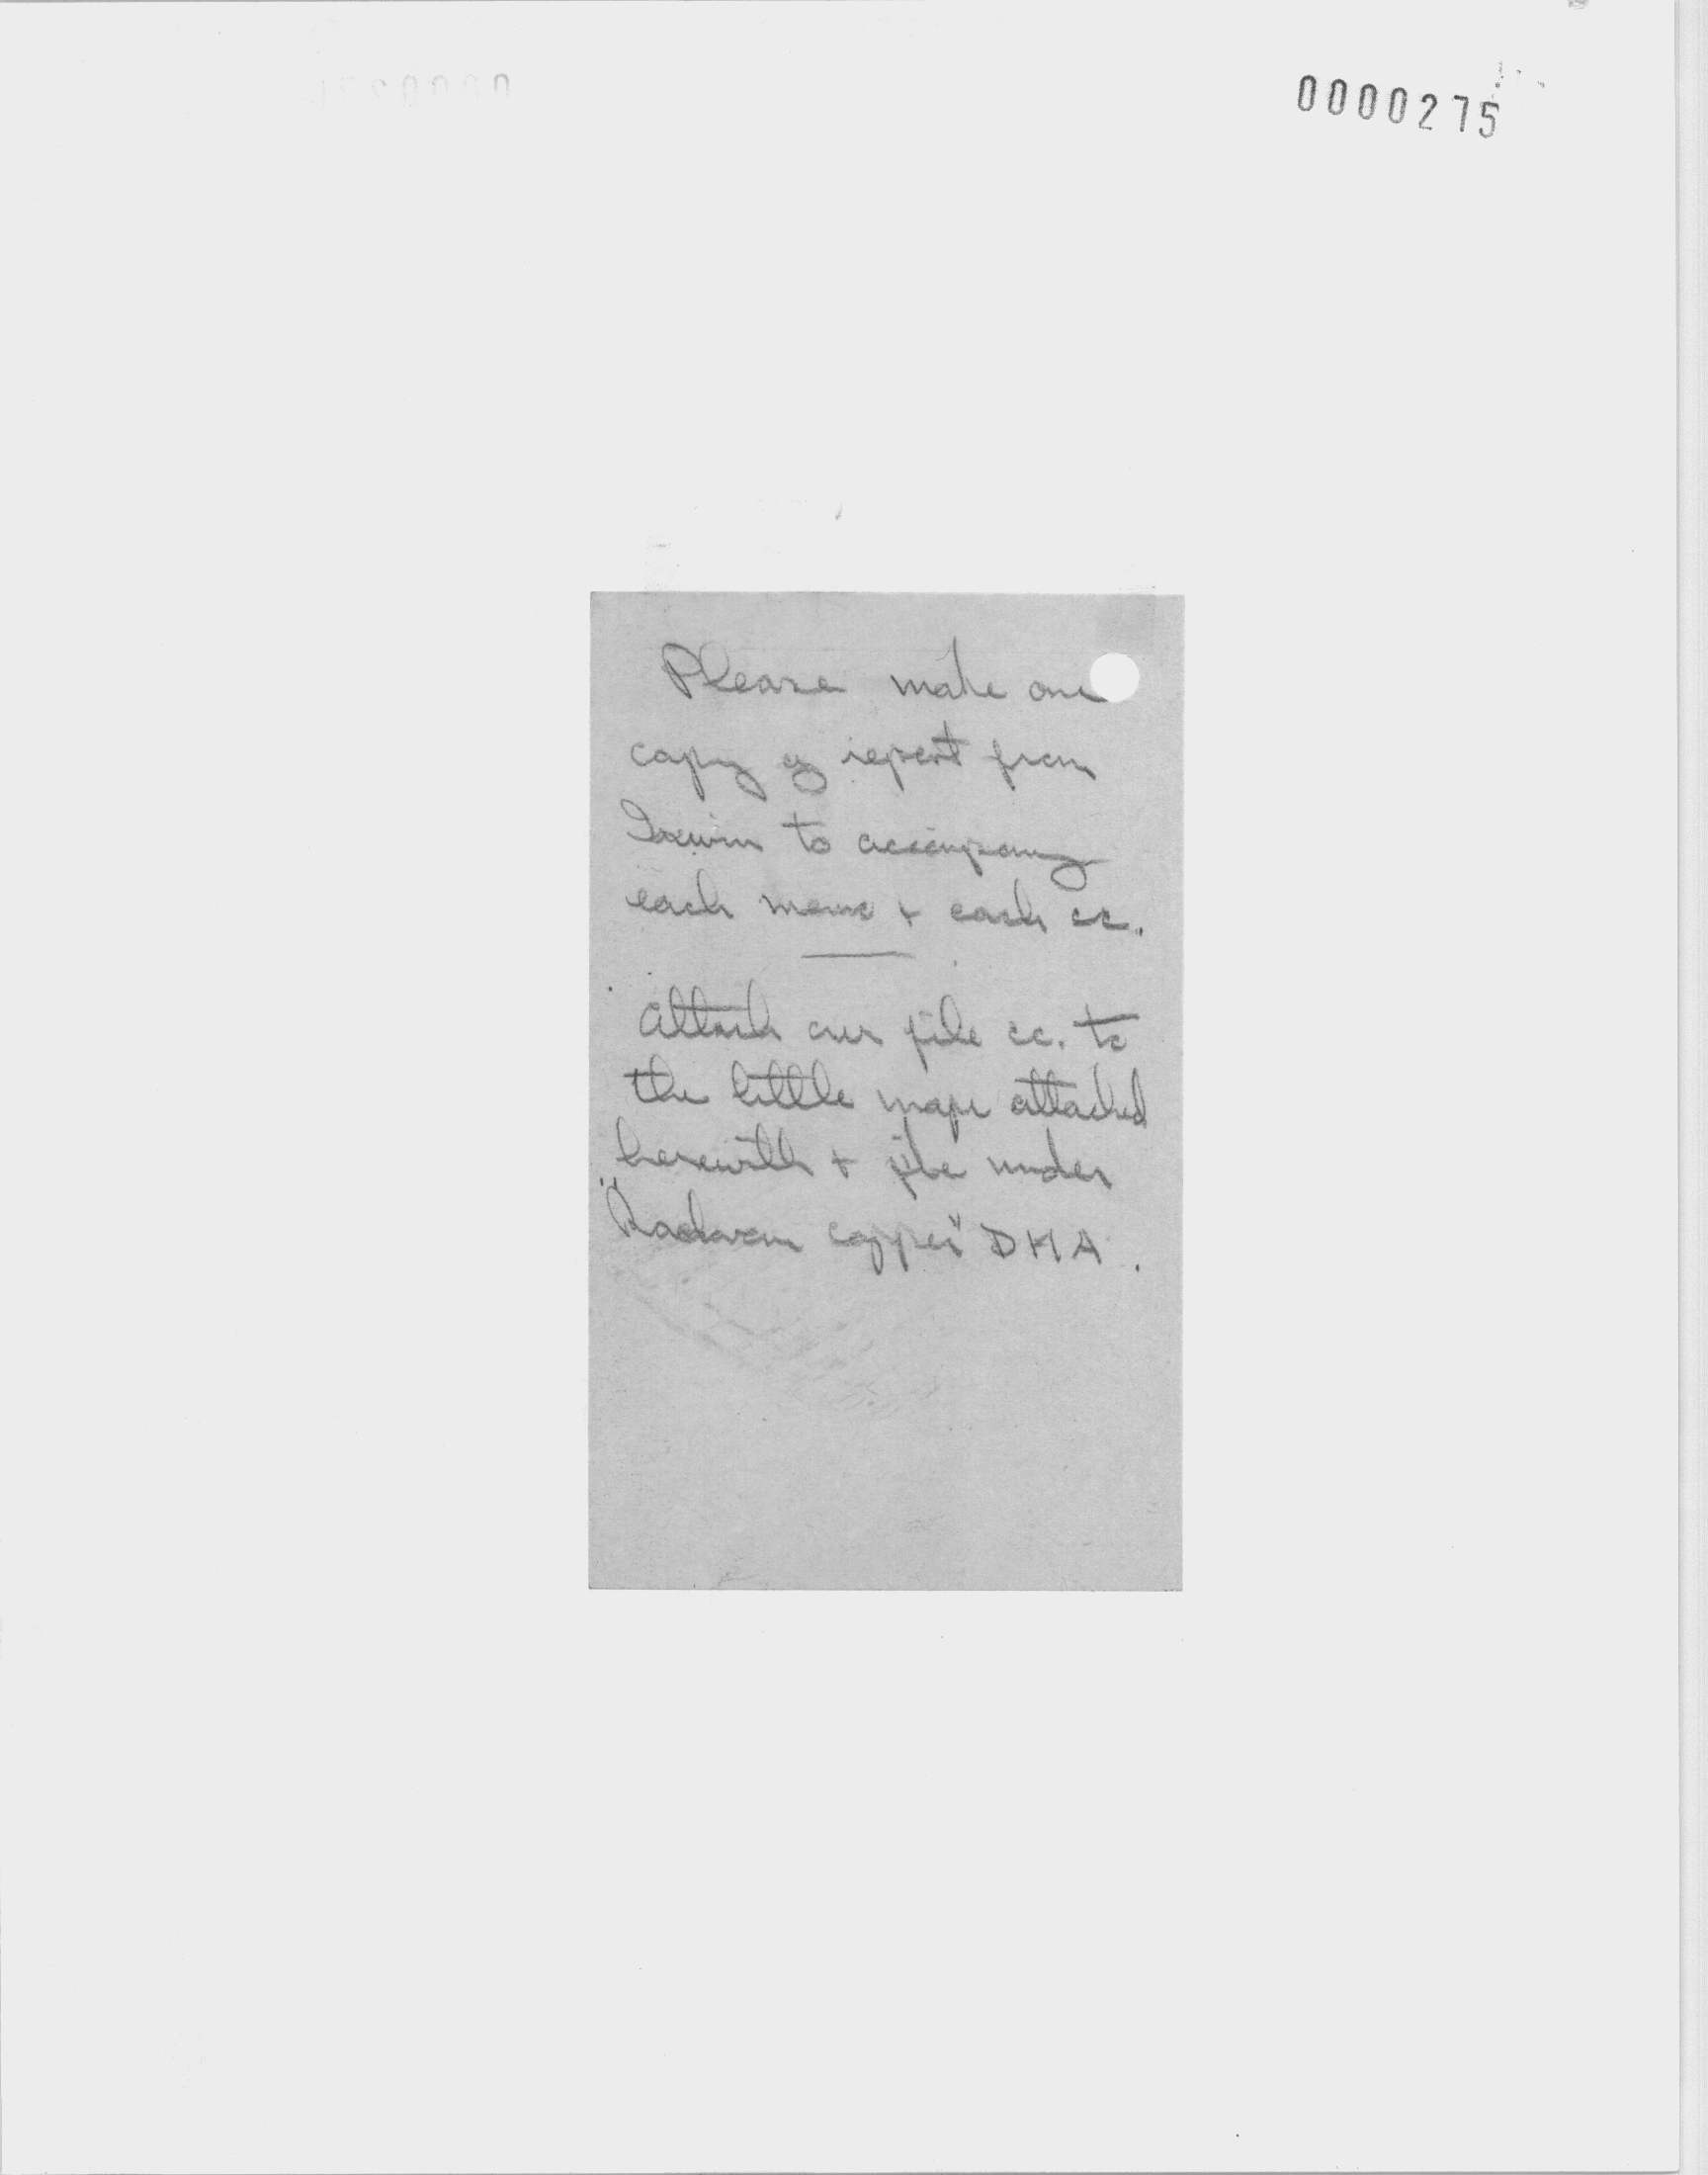 0000275
Please make one
copy of report from
Irwin to accompany
each memo + each cc.
Attach our file cc. to
the little map attached
herewith + file under
" copper" DHA.